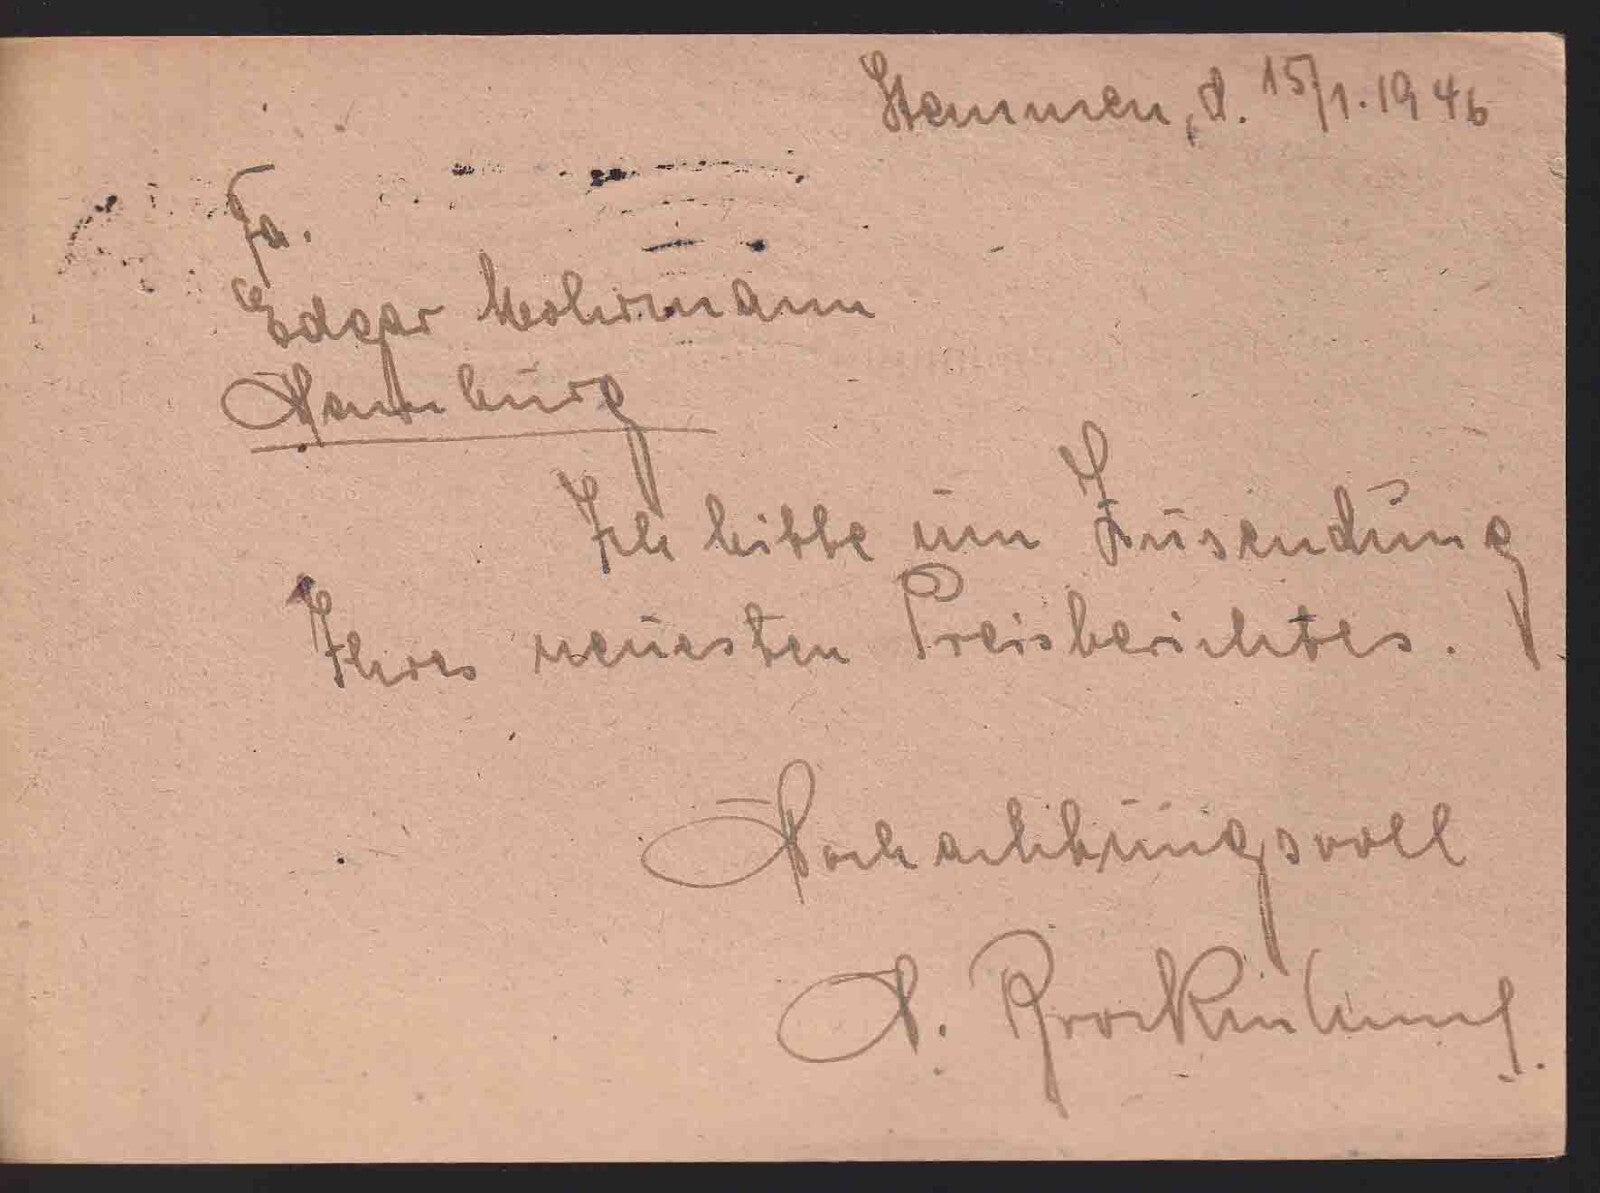 Stemmen, d. 15/1. 1946
Fa.
Edgar Mohrmann
Hamburg
Ich bitte um Zusendung
Ihres neuesten Preisberichtes.
Hochachtungsvoll
H.